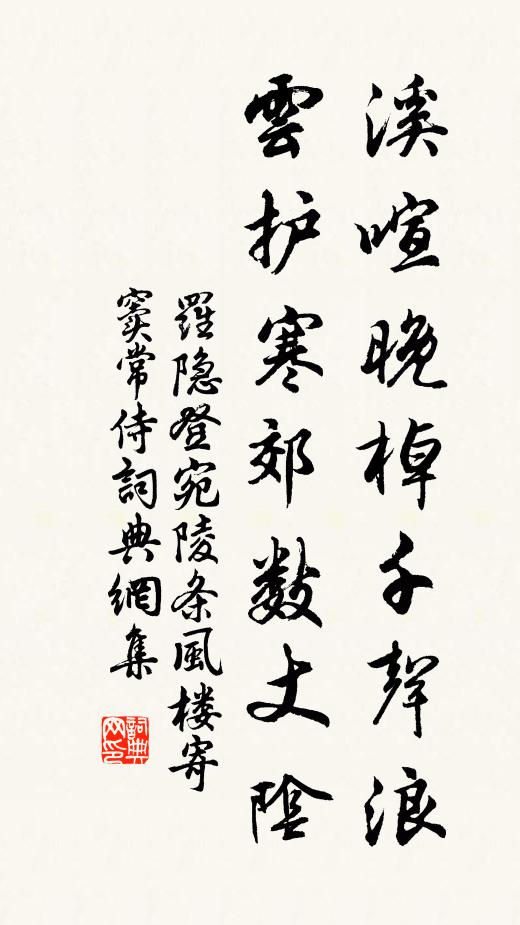 溪喧晚棹千聲浪
雲护寒郊数丈陰
羅隐登宛陵条風楼寄
窦常侍詞典網集
詞典网印